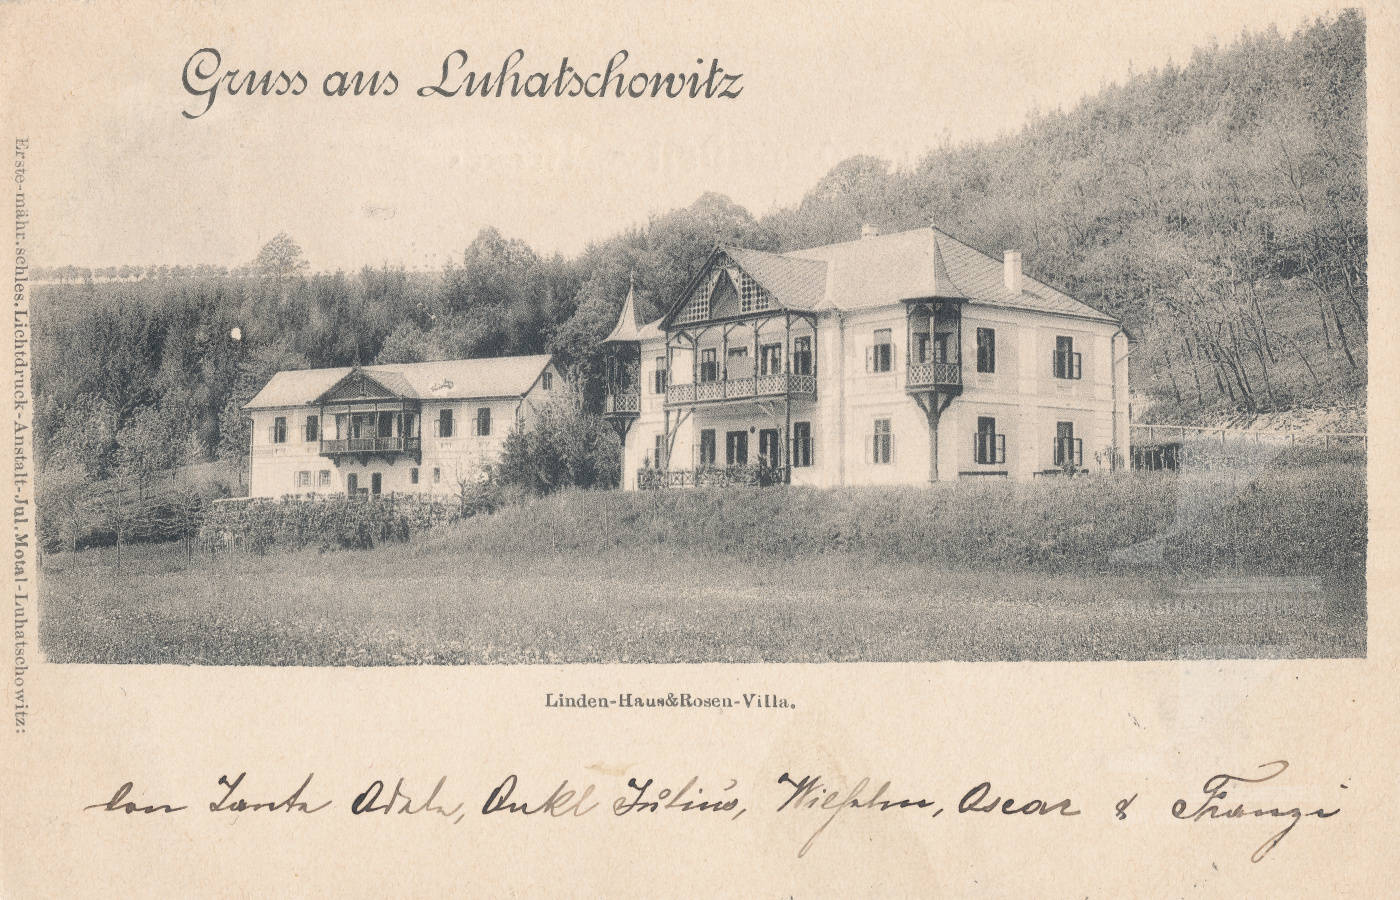 Gruss aus Luhatschowitz
Erste-mähr.schles.Lichtdruck-Anstalt-Jul.Motal-Luhatschowitz:
Linden-Haus&Rosen-Villa.
Von Tante Adele, Onkl Julius, Wilhelm, Oscar & Franzi